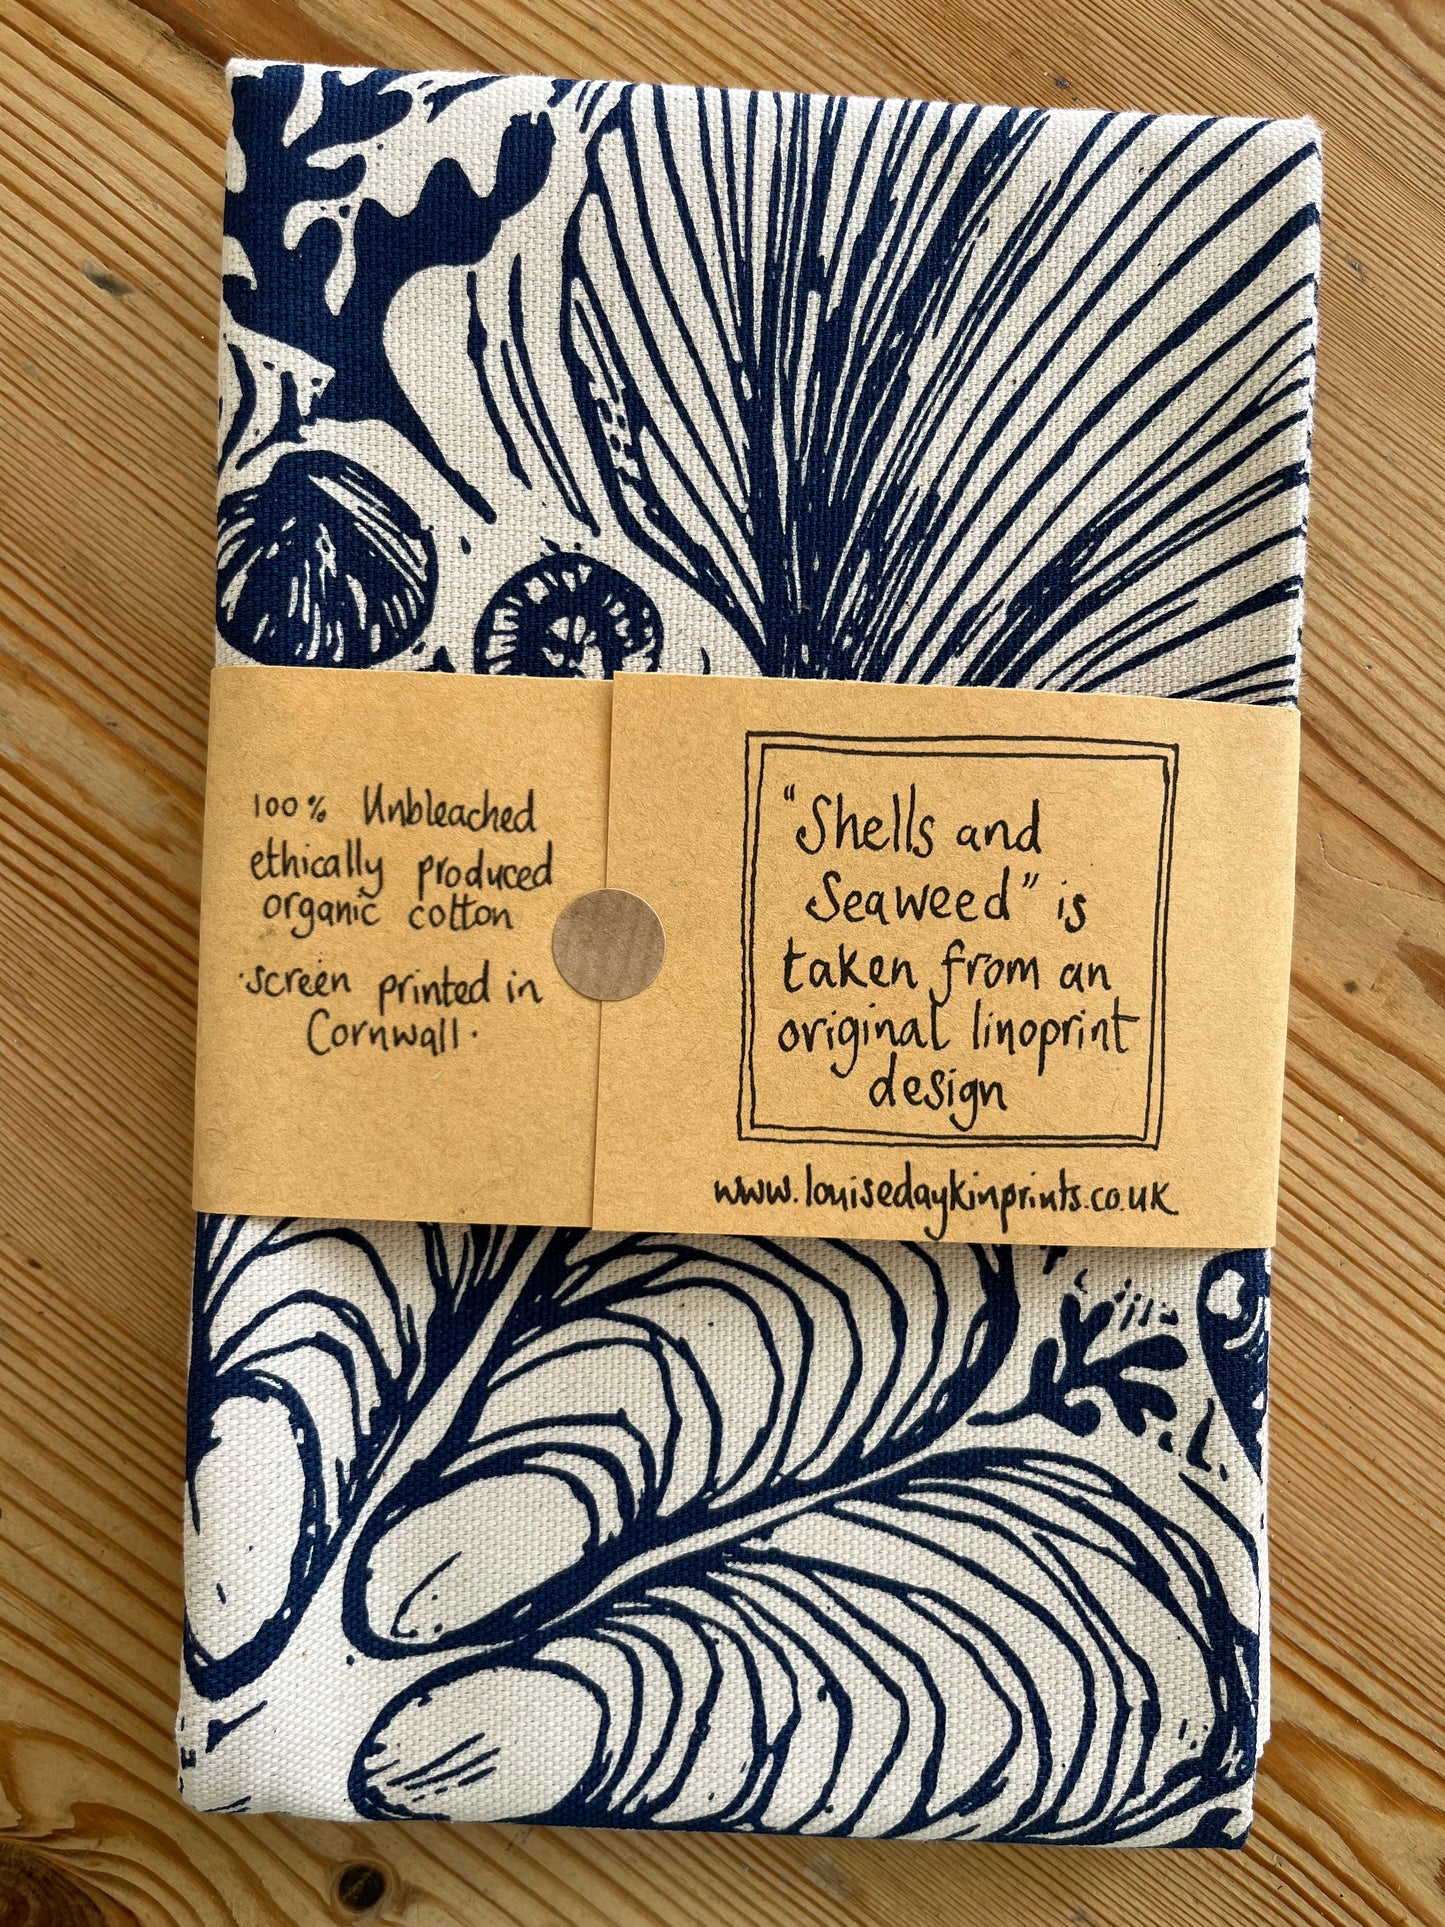 100% Unbleached
ethically produced
organic cotton
·screen printed in
Cornwall·
"Shells and
Seaweed" is
taken from an
original linoprint
design
www.louisedaykinprints.co.uk